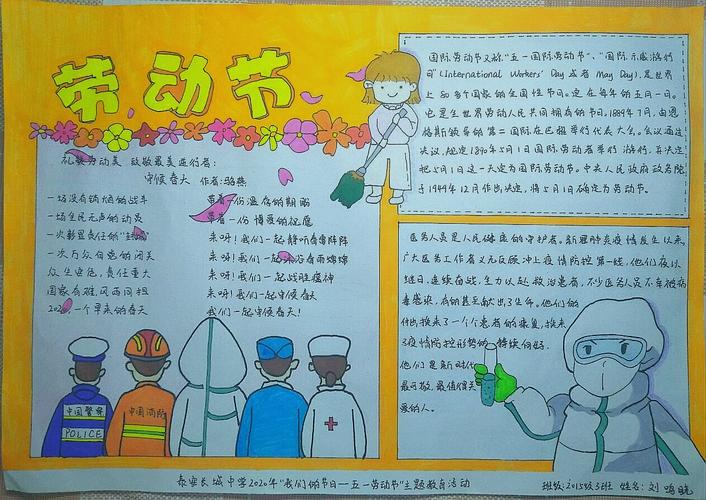 劳动节
礼赞劳动美 致敬最美逆行者：
守候春天 作者：骆燕
一场没有硝烟的战斗
一场全民无声的动员
一次彰显责任的"封城"
一次万众自觉的闭关
众生皆危，责任重大
国家有难，风雨同担
2020，一个早来的春天
带着一份温商的期盼
带着一份博爱的祝愿
来呀！我们一起静听春雷阵阵
来呀！我们一起沐浴春雨绵绵
来呀！我们一起战胜瘟神
来呀！我们一起守候春天
我们一起守候春天！
中国警察
POLICE
中国消防
国际劳动节又称"五一国际劳动节"、"国际示威游行
日"(International Workers' Day 或者 May Day)，是世界
上80多个国家的全国性节日。定在每年的五月一日。
它是全世界劳动人民共同拥有的节日。1889年7月，由恩
格斯领导的第二国际在巴黎举行代表大会。会议通过
决议，规定1890年5月1日国际劳动者举行游行，并决定
把5月1日这一天定为国际劳动节。中央人民政府政务院
于1949年12月作出决定，将5月1日确定为劳动节。
医务人员是人民健康的守护者。新冠肺炎疫情发生以来，
广大医务工作者义无反顾冲上疫情防控第一线，他们夜以
继日，连续奋战，全力以赴救治患者，不少医务人员不幸被病
毒感染，有的甚至献出了生命。他们的
付出换来了一个个患者的康复，换来
了疫情防控形势的持续向好。
他们是新时代
最可敬、最值得关
爱的人。
泰安长城中学2020年"我们的节日—五一劳动节"主题教育活动
班级：2015级3班 姓名：刘鸣晓